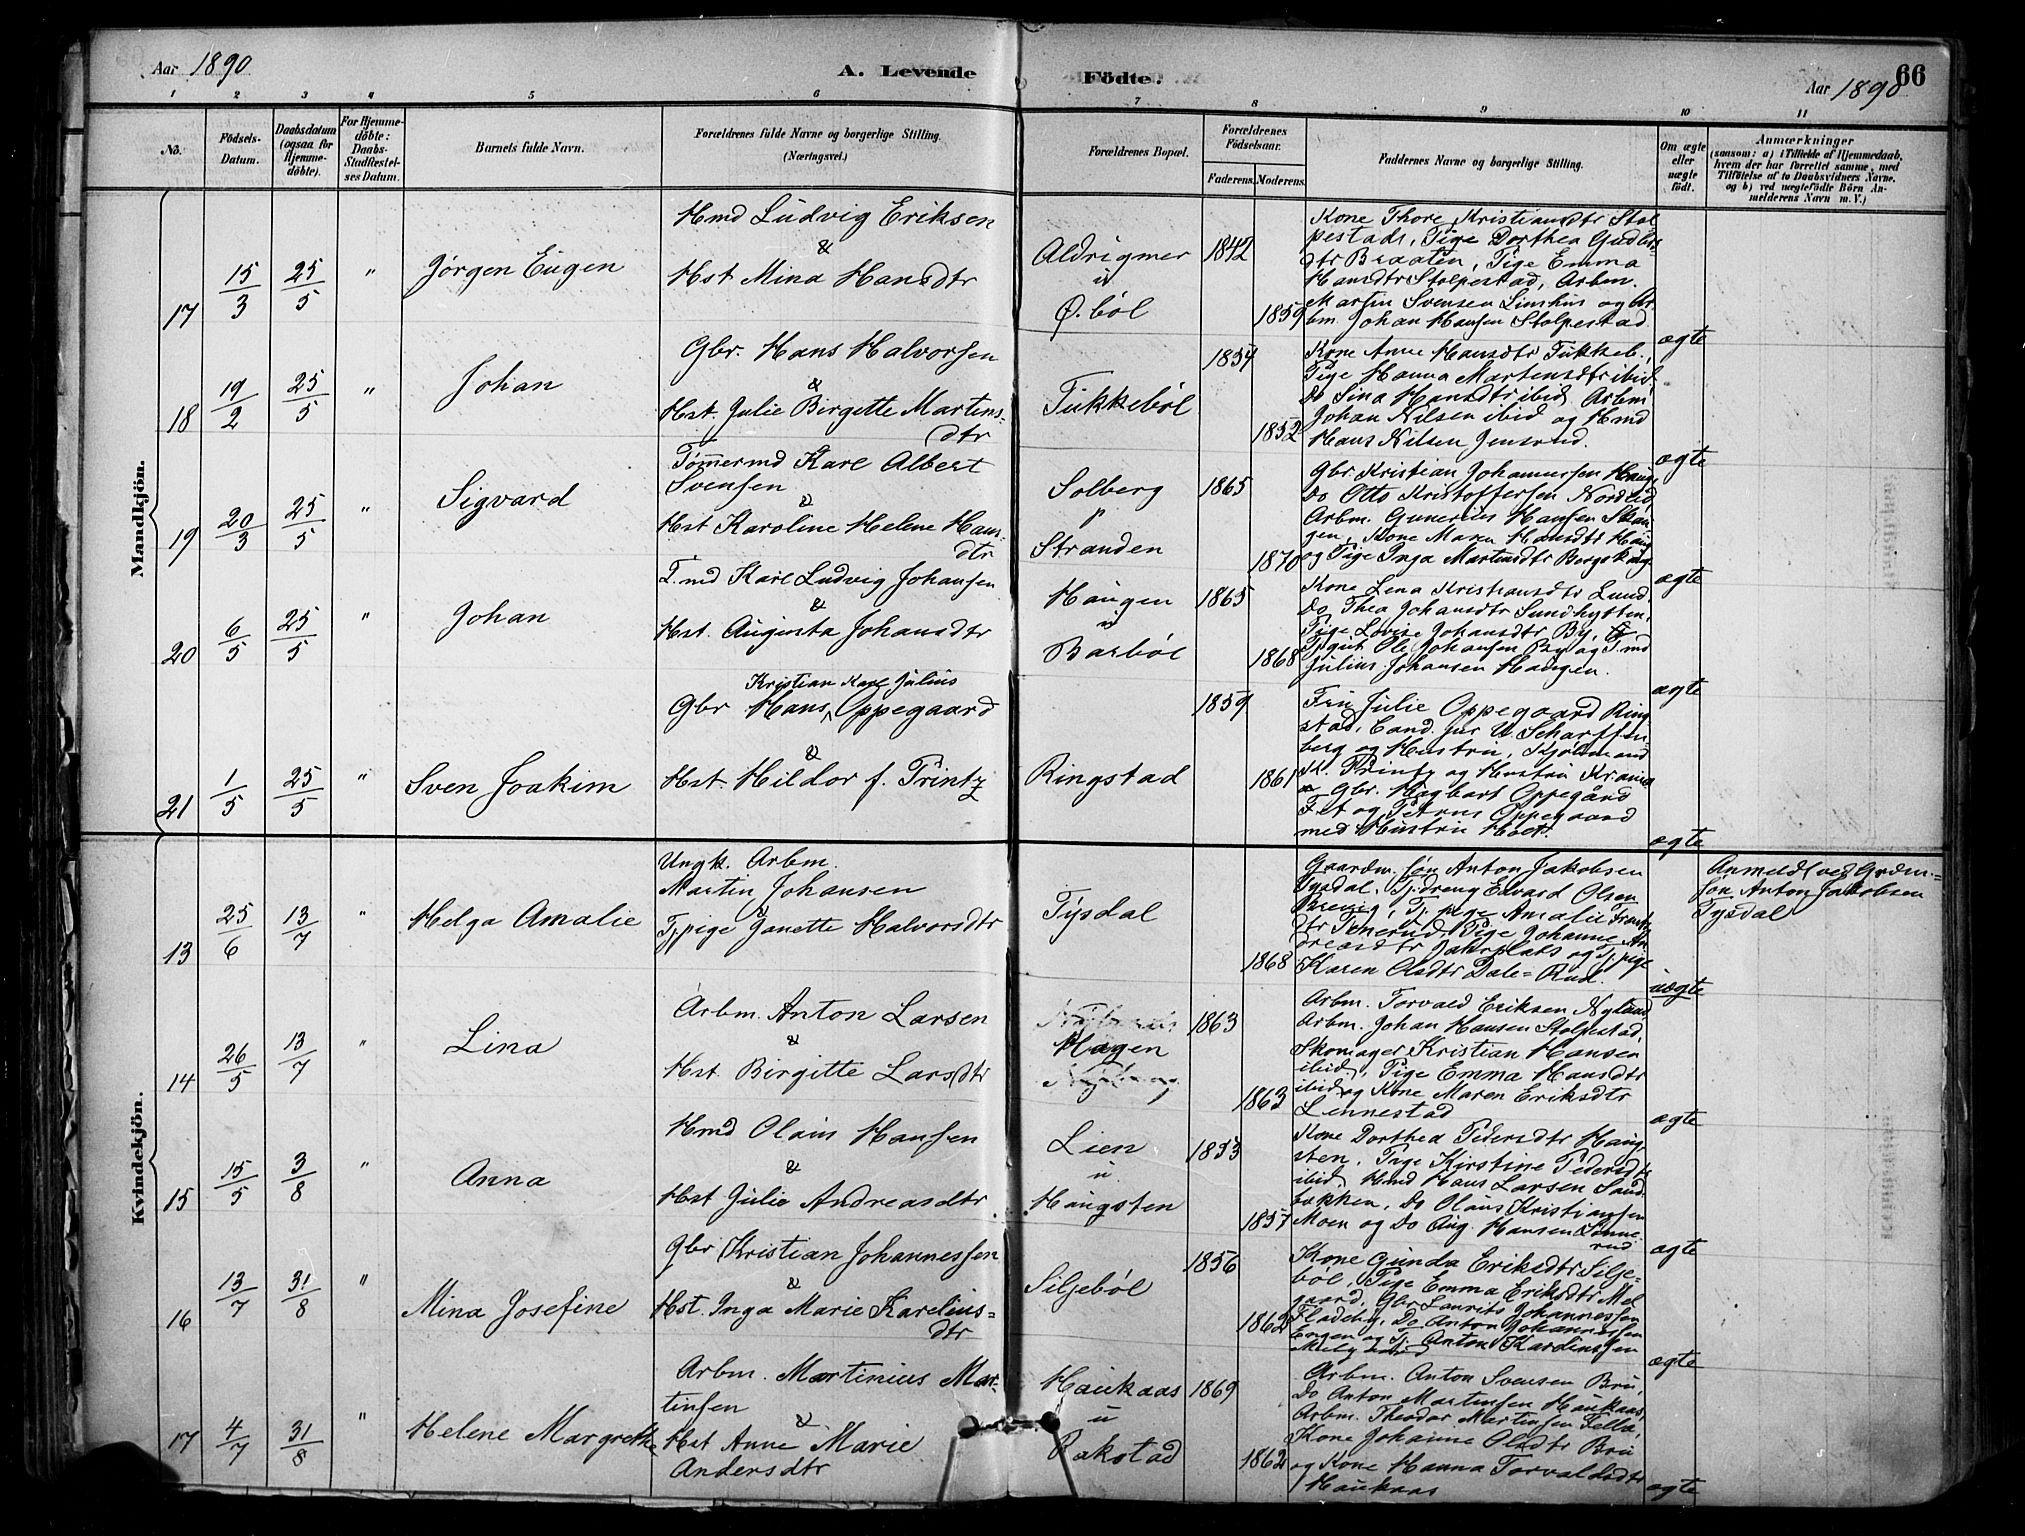 Aar 1890
A. Levende Födte.
66
Aar 1890
1 2 3 4 5 6 7 8 9 10 11
No.
Födsels-
Datum.
Daabsdatum
(ogsaa for
Hjemme-
döbte).
For Hjemme-
döbte:
Daabs-
Stadfæstel-
ses Datum.
Barnets fulde Navn.
Forældrenes fulde Navne og borgerlige Stilling.
(Næringsvei.)
Forældrenes Bopæl.
Forældrenes
Födselsaar.
Faderens. Moderens.
Faddernes Navne og borgerlige Stilling.
Om ægte
eller
uægte
födt.
Anmærkninger
(saasom: a) i Tilfælde af Hjemmedaab,
hvem der har forrettet samme, med
Tilföielse af to Daabsvidners Navne.
og b) ved uægtefödte Börn An-
melderens Navn m. V.)
Mandkjön.
17
15/3
25/5
"
Jørgen Eugen
Hmd Ludvig Eriksen
&
Hst Mina Hansdtr
Aldrigmer
u
Ø. böl
1842
1859
Kone Thore Kristiansdtr Stol-
pestad, Pige Dorthea Gudbr-
dtr Braaten, Pige Emma
Hansdtr Stolpestad, Arbm.
Martin Svensen Limhus og Ar-
bm. Johan Hansen Stolpestad
ægte
18
19/2
25/5
"
Johan
Gbr. Hans Halvorsen
&
Hst. Julie Birgitte Martins-
dtr
Tukkeböl
1854
1852
Kone Anne Hansdtr Tukkeb.,
Pige Hanna Martensdtr ibid
Do Lina Hansdtr ibid, Arbm
Johan Nilsen ibid og Hmd
Hans Nilsen Jensrud.
ægte
19
20/3
25/5
"
Sigvard
Tømmermd Karl Albert
Svensen
&
Hst Karoline Helene Hans-
dtr
Solberg
p
Stranden
1865
1870
Gbr Kristian Johannessen Haug,
Do Otto Kristoffersen Nordlid,
Arbm. Gunerius Hansen Skau-
gen, Kone Maren Hansdtr Haug
og Pige Inga Martinsdtr Bergskaug
ægte
20
6/5
25/5
"
Johan
T.md Karl Ludvig Johansen
&
Hst. Augusta Johansdtr
Haugen
u
Barböl
1865
1868
Kone Lena Kristiansdtr Lund,
Do Thea Johansdtr Sundhytten,
Pige Lovise Johansdtr By,
Tjgut Ole Johansen By og T.md
Julius Johansen Haugen.
ægte
21
1/5
25/5
"
Sven Joakim
Kristian Karl Julius
Gbr Hans Oppegaard
&
Hst. Hildor f. Printz
Ringstad
1859
1861
Fru Julie Oppegaard Ring-
stad, Cand. jur U. Scharffen
berg og Hustru, Kjøbmand
K. Printz og Hustru
Gbr. Hagbart Oppegård
Fet og Petrus Oppegaard
med Hustru
ægte
Kvindekjön.
13
25/6
13/7
"
Helga Amalie
Ungk. Arbm.
Martin Johansen
&
Tjpige Janette Halvorsdtr
Tysdal
1868
Gaardm. søn Anton Jakobsen
Tysdal, Tjdreng Edvard Olsen
Brevig, Tj.pige Amalie Frants
dtr Tenerud, Pige Johanne An
dreasdtr Jahrplats og Tj.pige
Karen Olsdtr Dale=Rud.
uægte
Anmeldt ved Grdm-
søn Anton Jakobsen
Tysdal
14
26/5
13/7
"
Lina
Arbm. Anton Larsen
&
Hst. Birgitte Larsdtr
Hagen
1863
1863
Arbm. Torvald Eriksen Nyland
Arbm. Johan Hansen Stolpestad,
Skomager Kristian Hansen
ibid, Pige Emma Hansdtr
ibid og Kone Maren Eriksdtr
Lennestad
ægte
15
15/5
3/8
"
Anna
Hmd Olaus Hansen
&
Hst Julie Andreasdtr
Lien
u.
Haugsten
1853
1857
Kone Dorthea Pedersdtr Haug-
sten, Pige Kirstine Pedersdtr
ibid, Hmd Hans Larsen Sand-
bækken, Do Olaus Kristiansen
Moen og Do Aug. Hansen Lønne-
rud
ægte
16
13/7
31/8
"
Mina Josefine
Gbr Kristian Johannessen
&
Hst. Inga Marie Karelius-
dtr
Siljeböl
1856
1862
Kone Gunda Eriksdtr Silje-
böl, Pige Emma Eriksdtr Mel
gaard, Gbr Laurits Johannessen
Fladeby, Do Anton Johannessen
Engen og Tj. Anton Karelinssen
ægte
17
4/7
31/8
"
Helene Margrethe
Arbm. Martinius Mar-
tinsen
&
Hst Anne Marie
Andersdtr
Haukaas
u
Rakstad
1869
1862
Arbm. Anton Svensen Bru,
Do Anton Martinsen Haukaas,
Arbm. Theodor Martinsen Fella,
Kone Johanne Olsdtr Bru
og Kone Hanna Torvaldsdtr
Haukaas
ægte